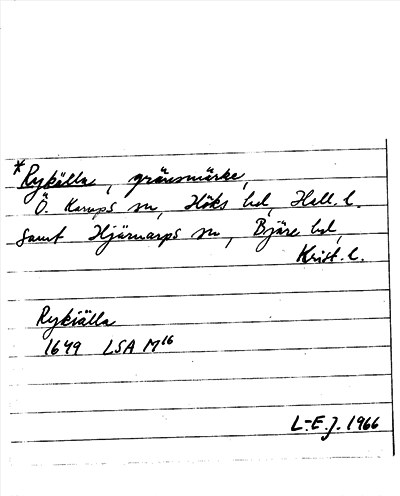 *Rykälla, gränsmärke,
Ö. Karups sn, Höks hd, Hall. l.
samt Hjärnarps sn, Bjäre hd,
Krist. l.
Rykiälla
1649 LSA M16
L-E.J. 1966